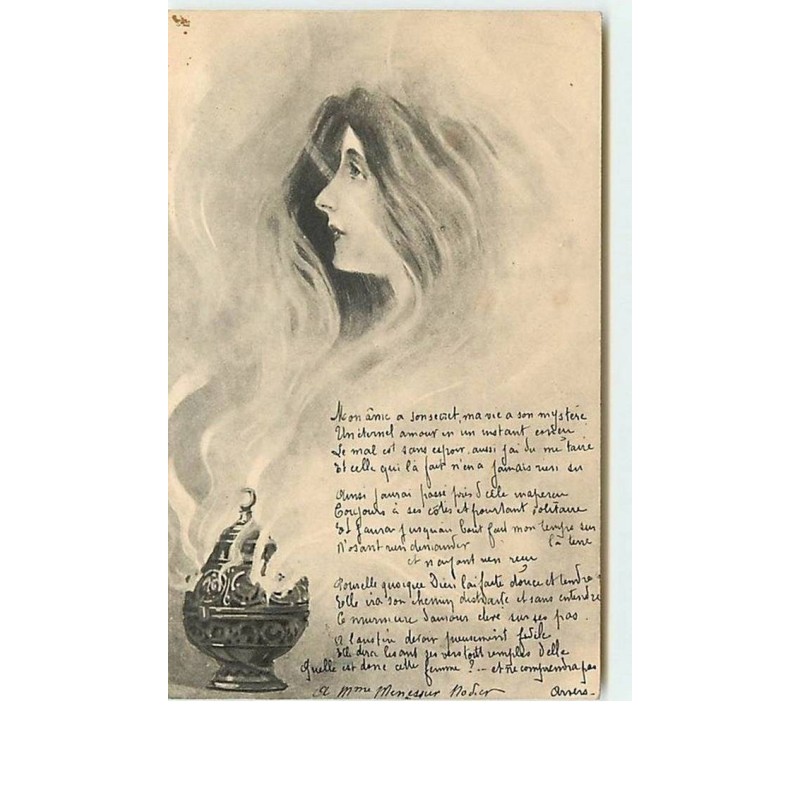 Mon âme a son secret, ma vie a son mystère
Un éternel amour en un instant conçu
Le mal est sans espoir, aussi j'ai du me taire
Et celle qui l'à fait n'en a jamais rien su
Ainsi j'aurai passé près d'elle inaperçu
Toujours à ses côtés et pourtant solitaire
Et j'aurai jusqu'au bout fait mon temps sur
la terre
N'osant rien demander
et n'ayant rien reçu
Pour elle quoique Dieu l'ai faite douce et tendre
Elle ira son chemin distraite et sans entendre
Ce murmure d'amour élevé sur ses pas.
A l'austère devoir pieusement fidèle
Elle dira lisant ces vers tout remplis d'elle
Quelle est donc cette femme ?... et ne comprendra pas
A Mme Menessier Nodier Arvers.